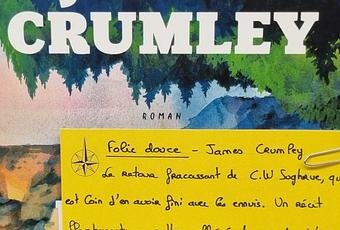 CRUMLEY
ROMAN
Folie douce - James Crumley
Le retour fracassant de C.W Sughrue, qu
est loin d'en avoir fini avec les ennuis. Un récit